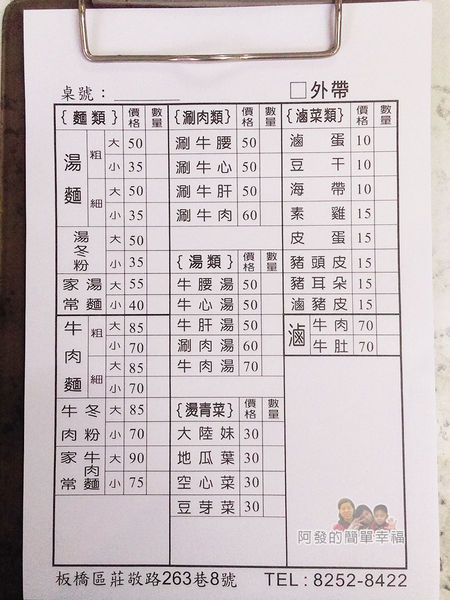 桌號：
□外帶
{麵類} 價格 數量
湯麵 粗 大 50
小 35
細 大 50
小 35
湯冬粉 大 50
小 35
家常湯麵 大 55
小 40
牛肉麵 粗 大 85
小 70
細 大 85
小 70
牛肉冬粉 大 85
小 70
家常牛肉麵 大 90
小 75
{涮肉類} 價格 數量
涮牛腰 50
涮牛心 50
涮牛肝 50
涮牛肉 60
{湯類} 價格 數量
牛腰湯 50
牛心湯 50
牛肝湯 50
涮肉湯 60
牛肉湯 70
{燙青菜} 價格 數量
大陸妹 30
地瓜葉 30
空心菜 30
豆芽菜 30
{滷菜類} 價格 數量
滷蛋 10
豆干 10
海帶 10
素雞 15
皮蛋 15
豬頭皮 15
豬耳朵 15
滷豬皮 15
滷 牛肉 70
牛肚 70
阿發的簡單幸福
板橋區莊敬路263巷8號 TEL：8252-8422